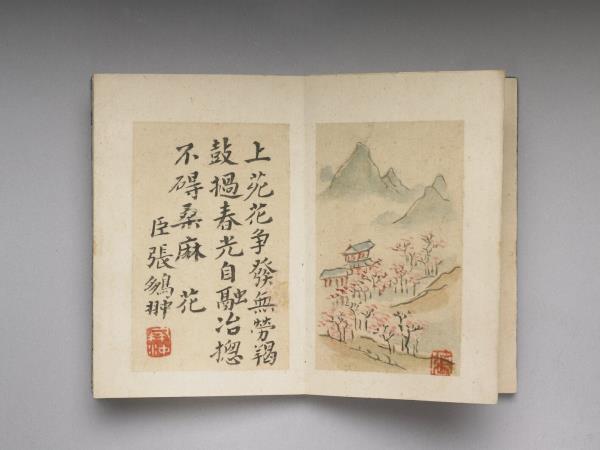 上苑花争發無勞羯
鼓撾春光自融冶摠
不碍桑麻花
臣張鵬翀